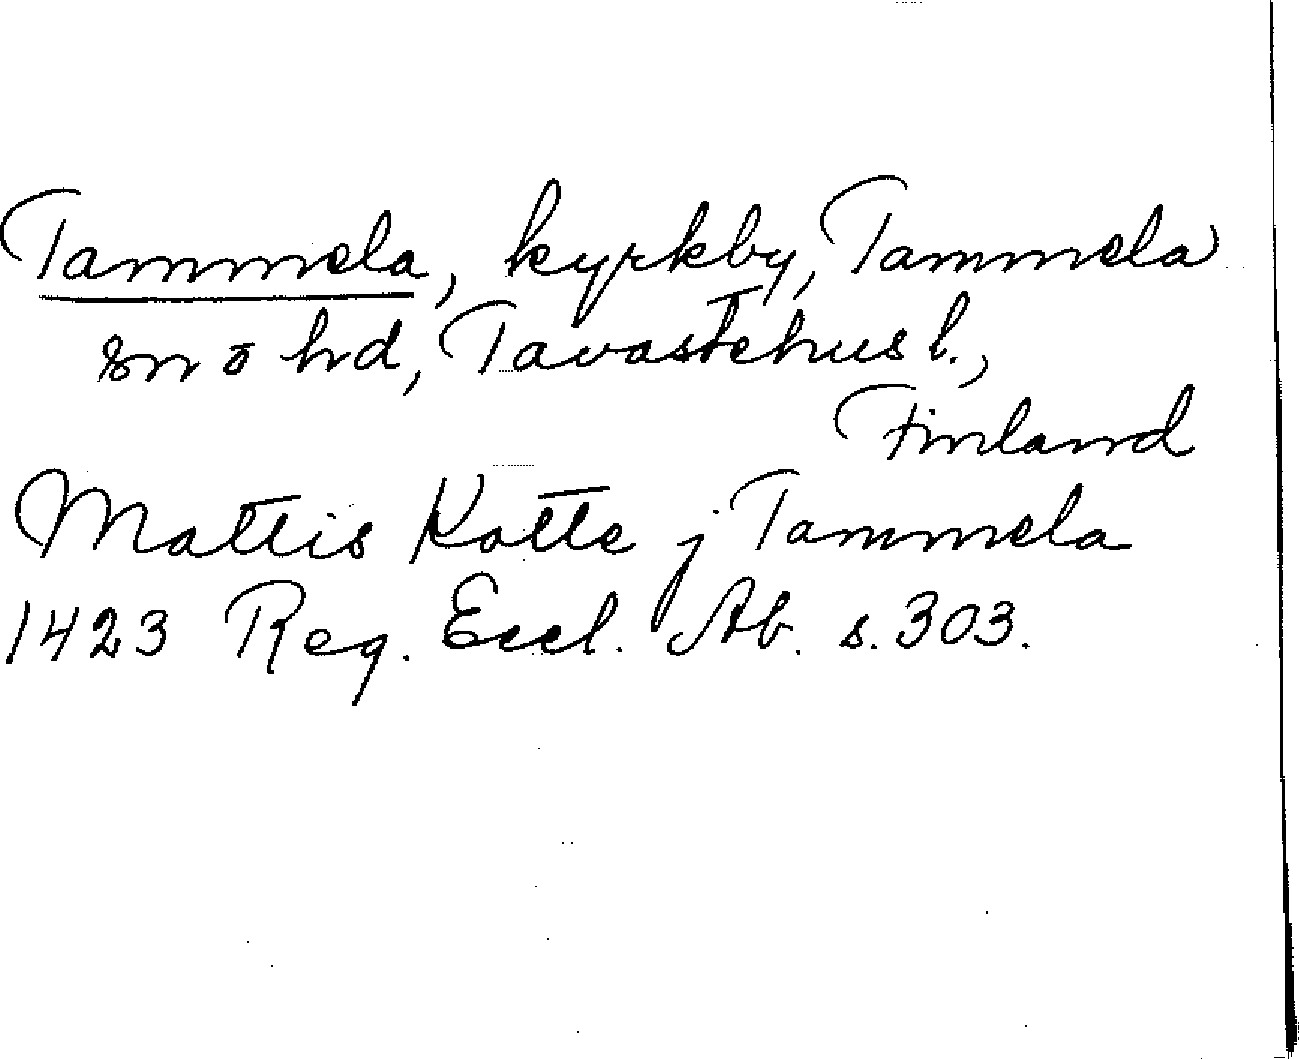 Tammela, kyrkby, Tammela
sn o hd, Tavastehus l.,
Finland
Mattis Kotte j Tammela
1423 Reg. Eccl. Ab. s. 303.